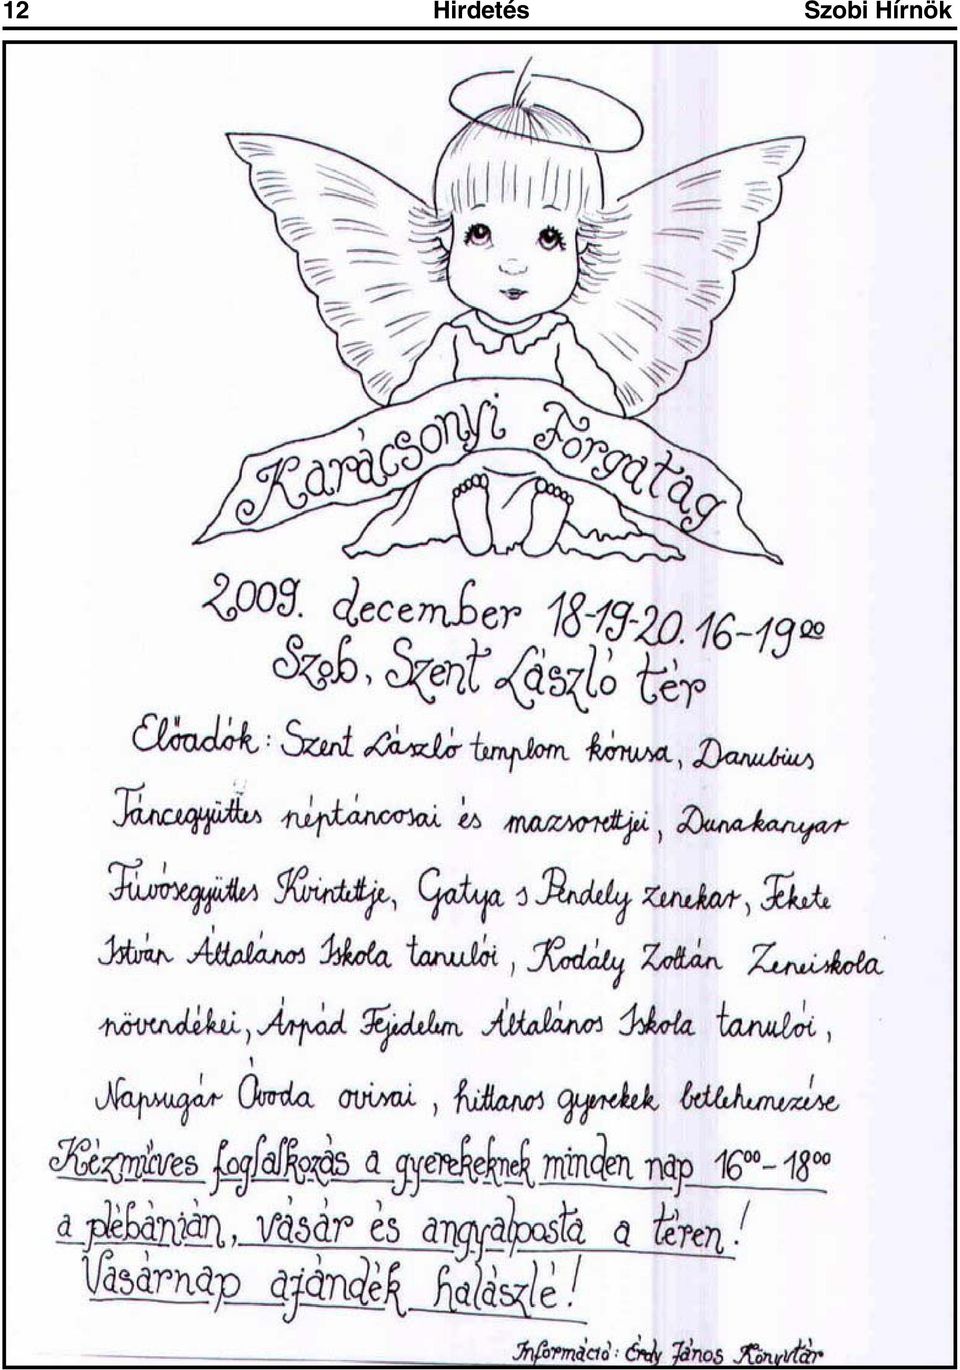 12 Hirdetés Szobi Hírnök
Karácsonyi Forgatag
2009. december 18-19-20. 16-19⁰⁰
Szob, Szent László tér
Előadók: Szent László templom kórusa, Danubius
Táncegyüttes néptáncosai és mazsorettjei, Dunakanyar
Fúvósegyüttes Kvintettje, Gatya s Pendely zenekar, Fekete
István Általános Iskola tanulói, Kodály Zoltán Zeneiskola
növendékei, Árpád Fejedelem Általános Iskola tanulói,
Napsugár Óvoda ovisai, hittanos gyerekek betlehemezése
Kézműves foglalkozás a gyerekeknek minden nap 16⁰⁰-18⁰⁰
a plébánián, vásár és angyalposta a téren!
Vasárnap ajándék halászlé!
Információ: Érdy János Könyvtár